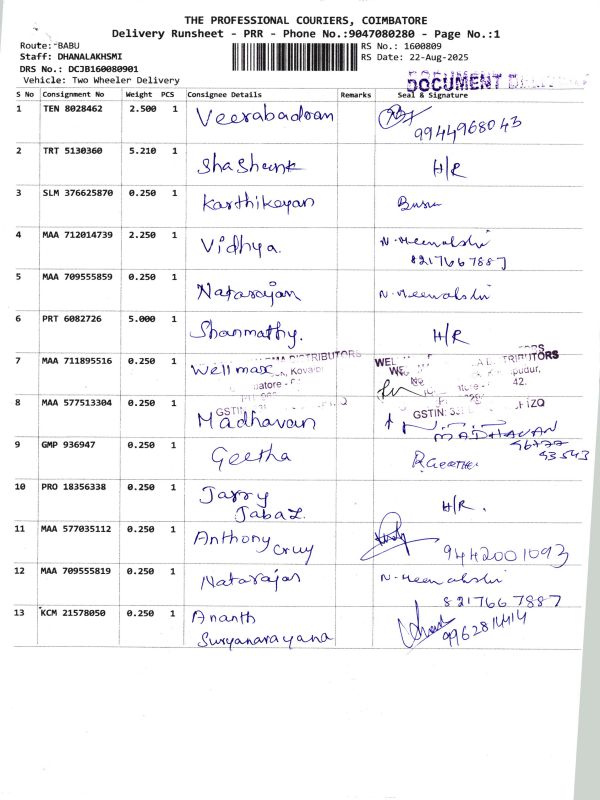 THE PROFESSIONAL COURIERS, COIMBATORE
Delivery Runsheet - PRR - Phone No.:9047080280 - Page No.:1
Route: BABU RS No.: 1600809
Staff: DHANALAKHSMI RS Date: 22-Aug-2025
DRS No.: DCJB160080901
Vehicle: Two Wheeler Delivery
DOCUMENT
S No Consignment No Weight PCS Consignee Details Remarks Seal & Signature
1 TEN 8028462 2.500 1 Veerabadran
9944968043
2 TRT 5130360 5.210 1 Shasheenk H/R
3 SLM 376625870 0.250 1 Karthikeyan
4 MAA 712014739 2.250 1 Vidhya. N. Meenakshi
8217667887
5 MAA 709555859 0.250 1 Natarajan N. Meenakshi
6 PRT 6082726 5.000 1 Shanmathy. H/R
7 MAA 711895516 0.250 1 Wellmax
DISTRIBUTORS
8 MAA 577513304 0.250 1 Madhavan
GSTIN: 33
MADHAVAN
96777
43543
9 GMP 936947 0.250 1 Geetha R.Geetha
10 PRO 18356338 0.250 1 Jarry H/R.
Jabaz.
11 MAA 577035112 0.250 1 Anthony
Cruy 9442001093
12 MAA 709555819 0.250 1 Natarajas N. Meenakshi
8217667887
13 KCM 21578050 0.250 1 Ananth
Suryanarayana 9962814414